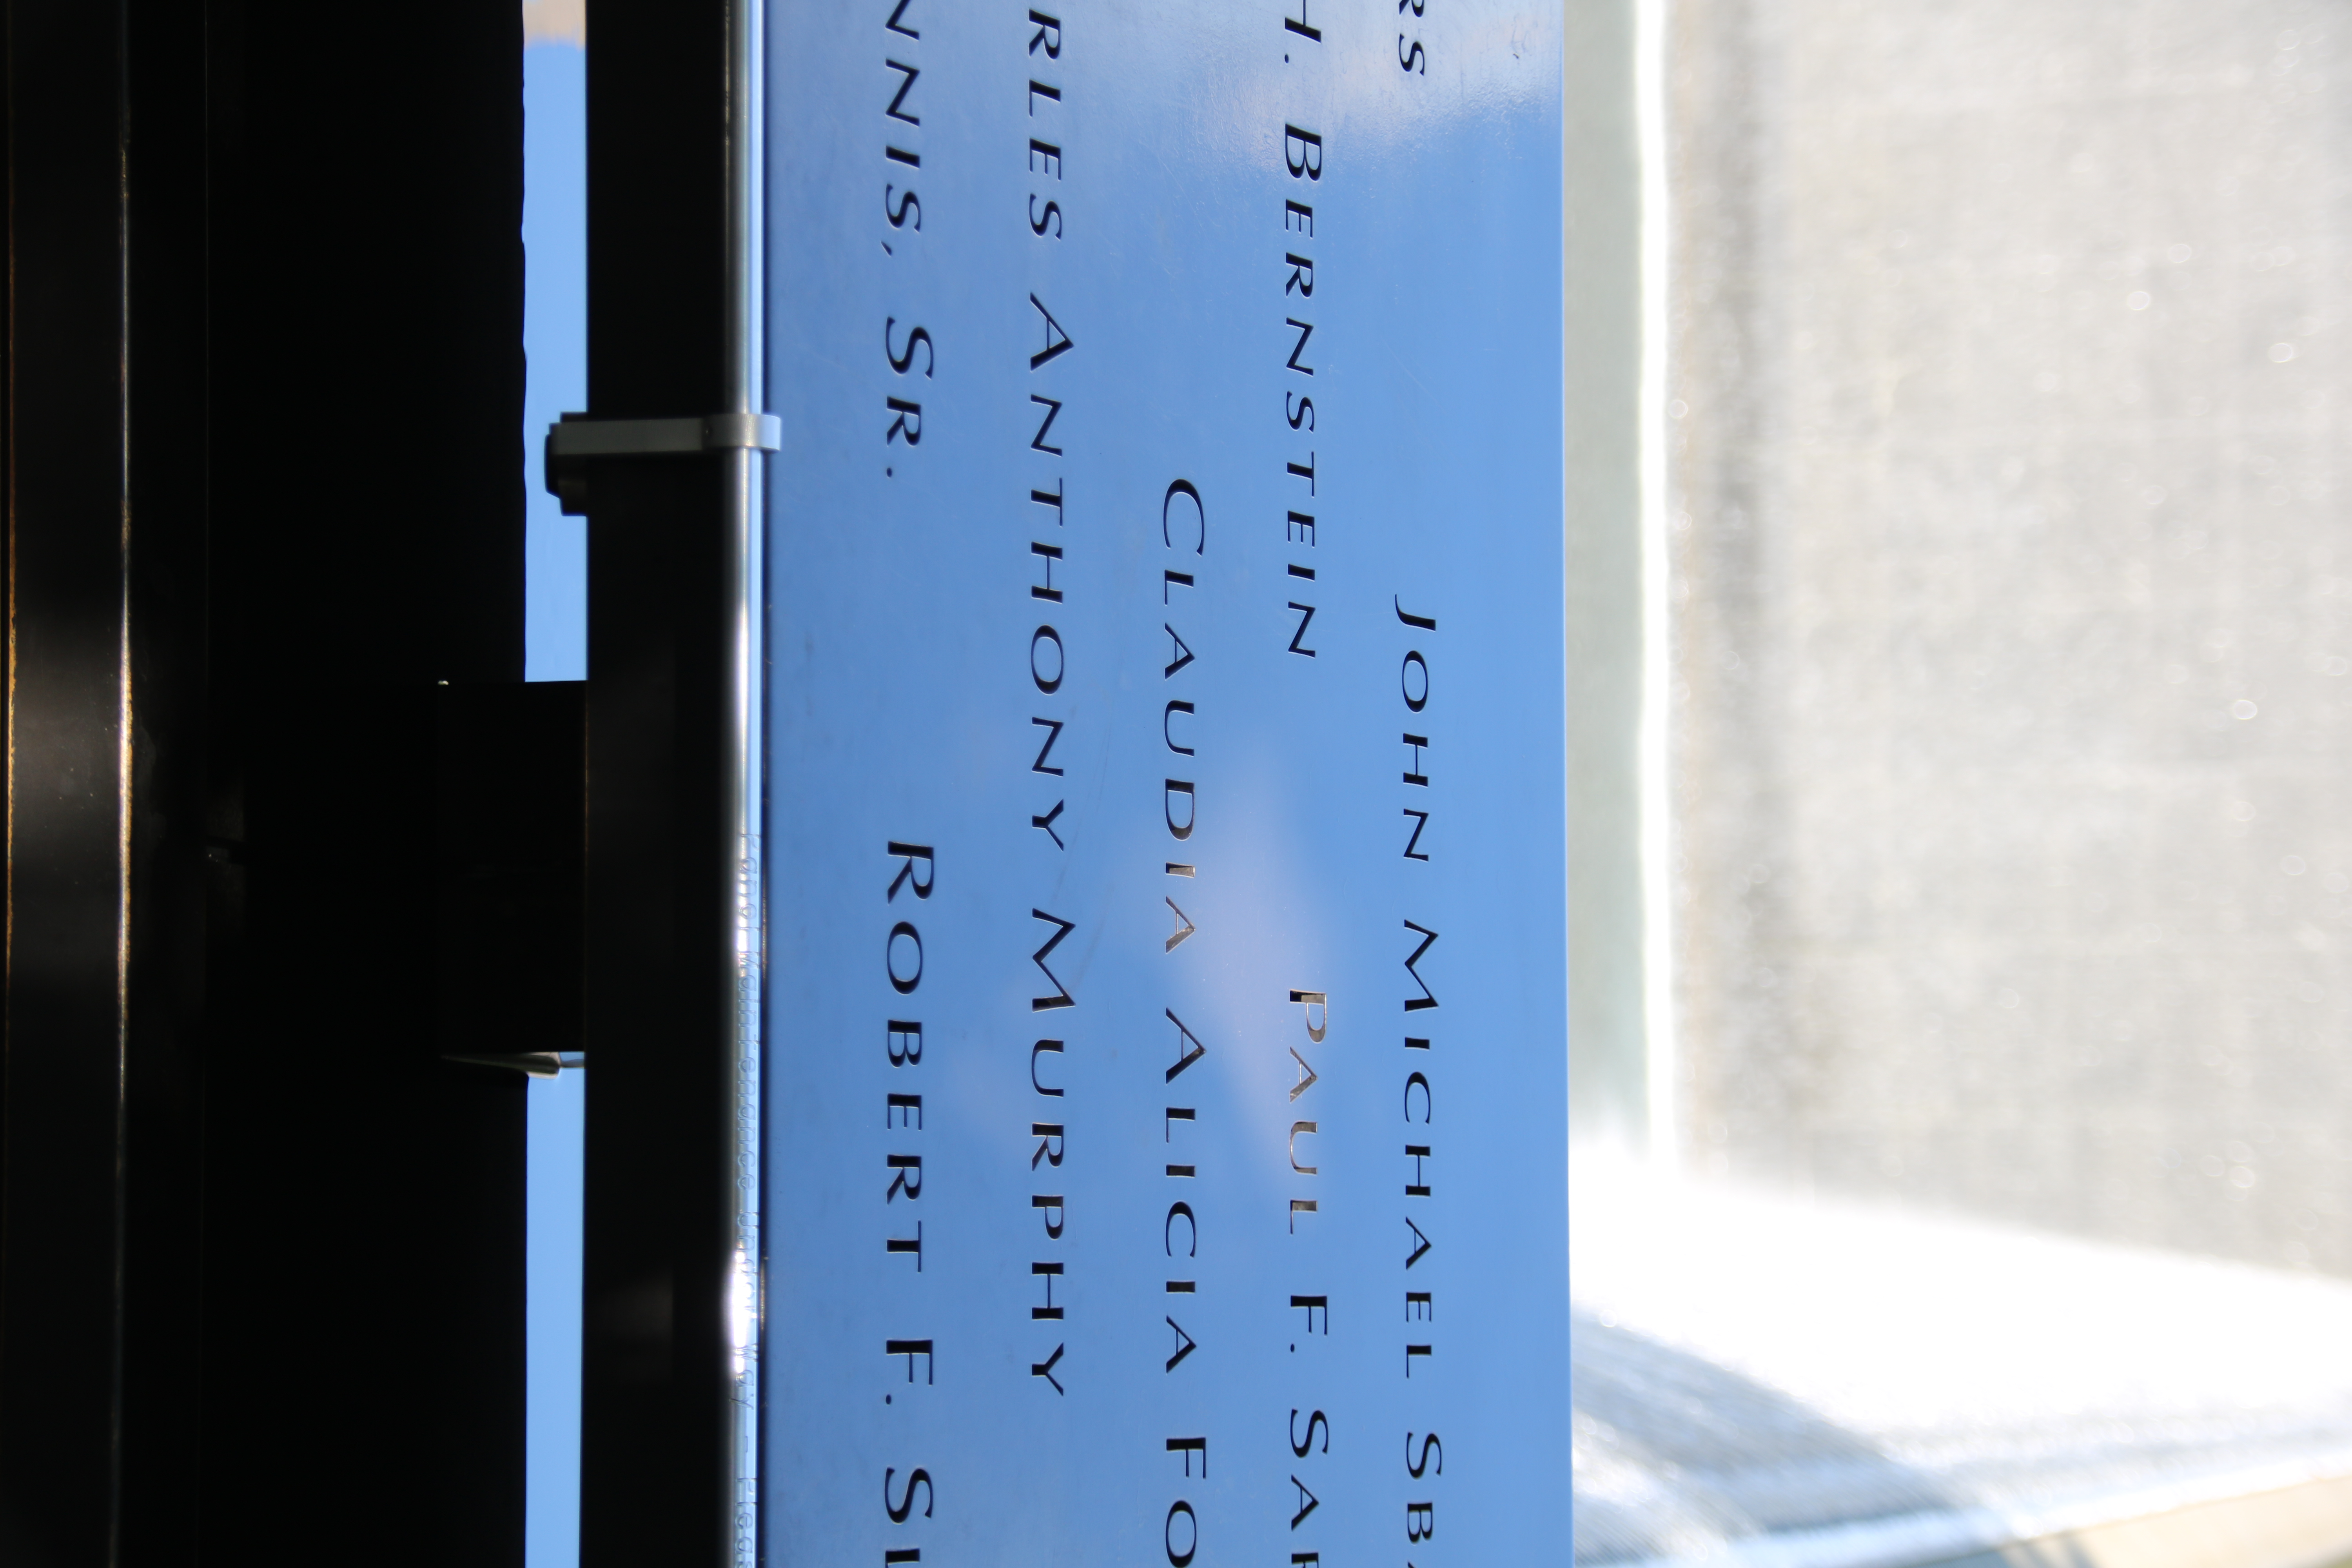 RS JOHN MICHAEL SBA
H. BERNSTEIN PAUL F. SAR
CLAUDIA ALICIA FO
RLES ANTHONY MURPHY
NNIS, SR. ROBERT F. SI